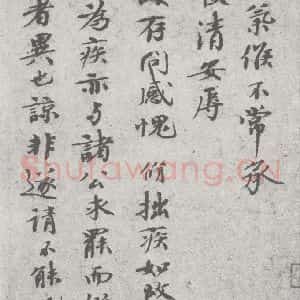 氣候不常承
清安辱
存問感愧 仲拙疾如故
為疾亦與諸公求罷而
者異也諒非遂請不能
Shufawang.CN